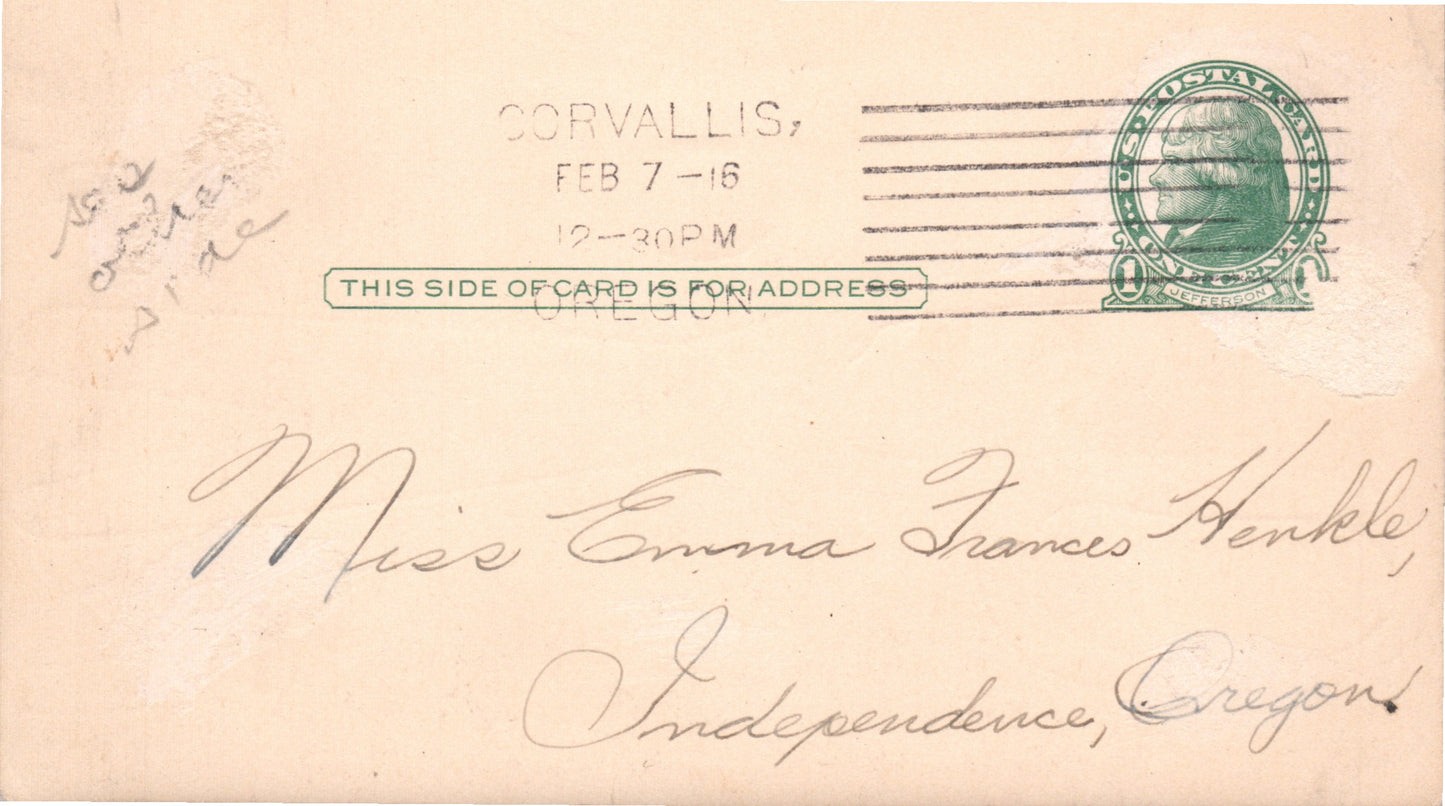 CORVALLIS,
FEB 7 — 16
12 — 30 PM
OREGON.
U.S. POSTAL CARD
ONE CENT
1
JEFFERSON
THIS SIDE OF CARD IS FOR ADDRESS
Miss Emma Frances Henkle,
Independence, Oregon.